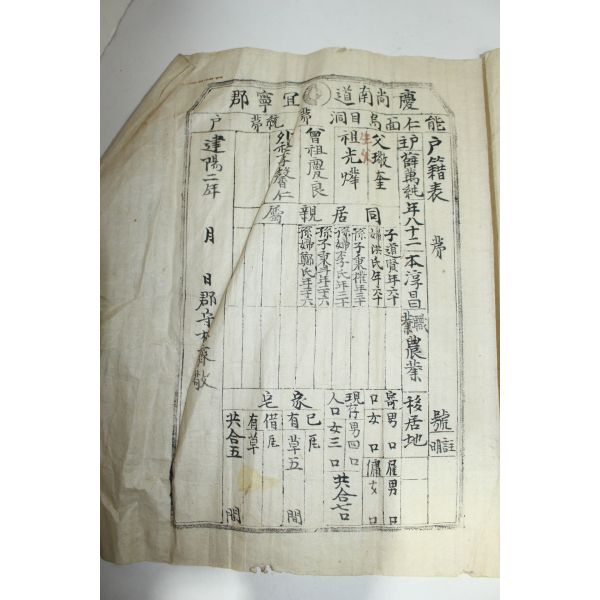 慶尚南道宜寧郡
能仁面烏目洞 第 統 第 戶
戶籍表 第 號
註明
戶主薛萬純年八十二本淳昌 職業農業 移居地
父璥奎
生父
祖光燁
曾祖慶良
外祖李馨仁
同居親屬
子道賢年六十
婦洪氏年六十
孫子秉權年三十
孫婦李氏年三十
孫婦鄭氏年二十八
寄 男 口 雇 男 口
口 女 口 傭 女 口
現存 男四口
人口 女三口 共合七口
家 已 瓦
有 草五 間
宅 借 瓦
有 草
共合五 間
建陽二年 月 日 郡守